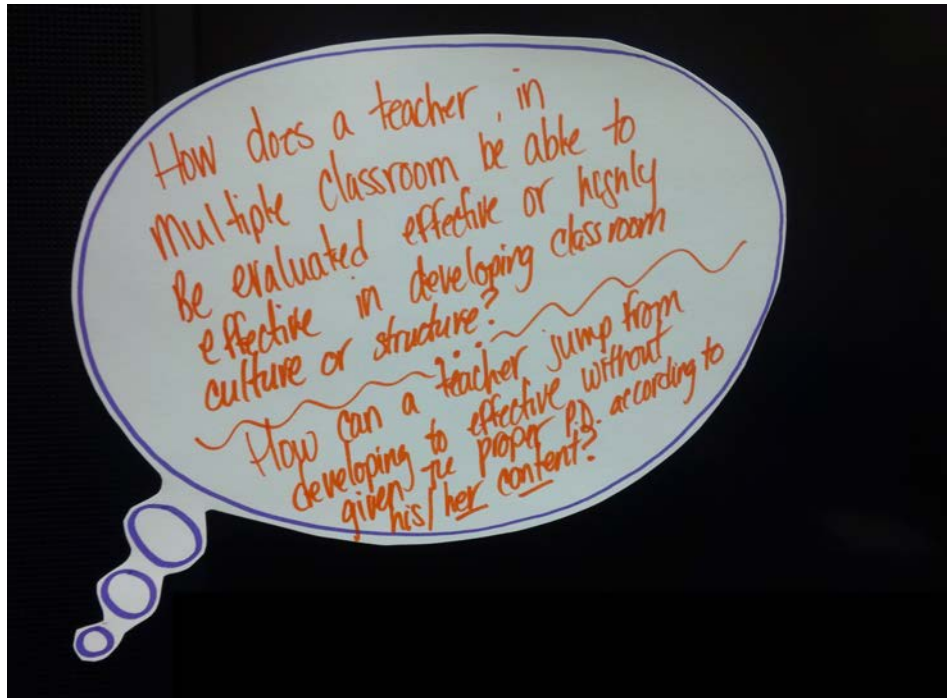 How does a teacher, in
multiple classroom be able to
Be evaluated effective or highly
effective in developing classroom
culture or structure?
How can a teacher jump from
developing to effective without
given the proper P.D. according to
his/her content?